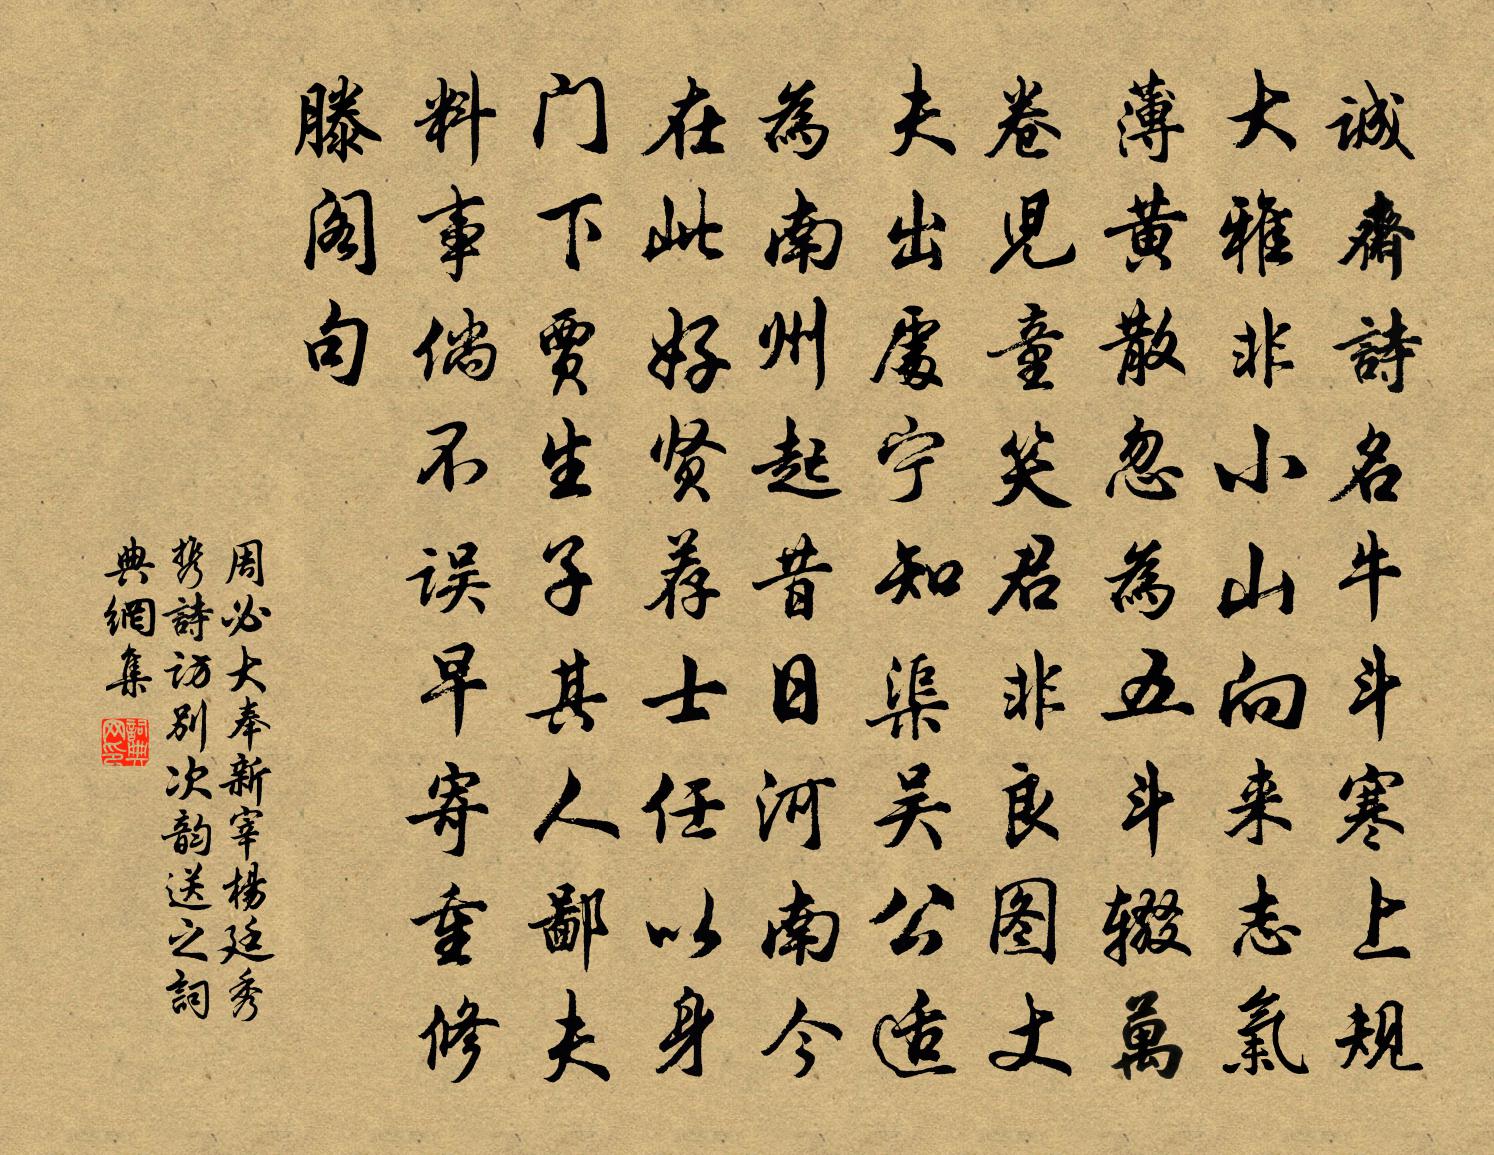 诚齋詩名牛斗寒上規
大雅非小山向来志氣
薄黄散忽為五斗辍萬
卷児童笑君非良图丈
夫出處宁知渠吴公适
為南州起昔日河南今
在此好贤荐士任以身
门下贾生子其人鄙夫
料事倘不误早寄重修
滕阁句
周必大奉新宰楊廷秀
携詩访别次韵送之詞
典網集
詞典网印